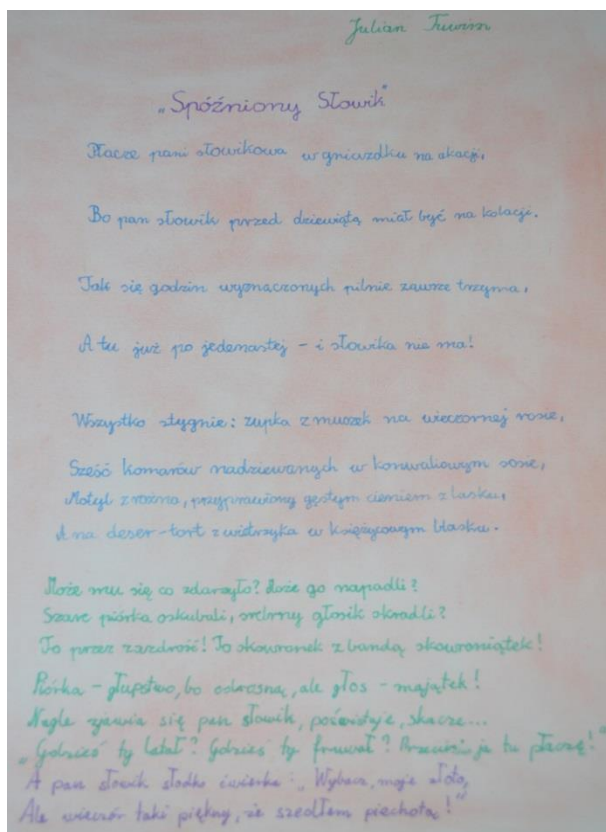 Julian Tuwim
„Spóźniony Słowik”
Płacze pani słowikowa w gniazdku na akacji,
Bo pan słowik przed dziewiątą miał być na kolacji.
Tak się godzin wyznaczonych pilnie zawsze trzyma,
A tu już po jedenastej - i słowika nie ma!
Wszystko stygnie: zupka z muszek na wieczornej rosie,
Sześć komarów nadziewanych w konwaliowym sosie,
Motyl z rożna, przyprawiony gęstym cieniem z lasku,
A na deser-tort z wietrzyka w księżycowym blasku.
Może mu się co zdarzyło? Może go napadli?
Szare piórka oskubali, srebrny głosik skradli?
To przez zazdrość! To skowronek z bandą skowroniątek!
Piórka - głupstwo, bo odrosną, ale głos - majątek!
Nagle zjawia się pan słowik, poświstuje, skacze...
„Gdzieś ty latał? Gdzieś ty fruwał? Przecież ja tu płaczę!”
A pan słowik słodko ćwierka: „Wybacz, moje złoto,
Ale wieczór taki piękny, że szedłem piechotą!”